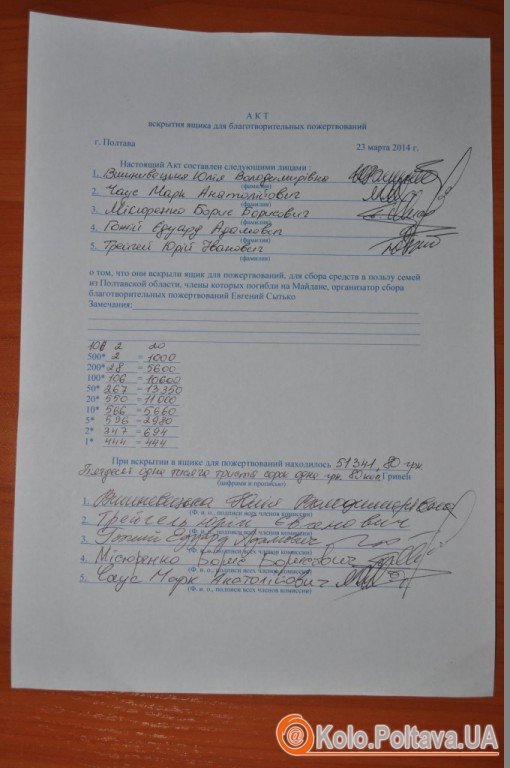 АКТ
вскрытия ящика для благотворительных пожертвований
г. Полтава 23 марта 2014 г.
Настоящий Акт составлен следующими лицами :
1. Вишневецька Юлія Володимирівна
(фамилия)
2. Чаус Марк Анатолійович
(фамилия)
3. Місюренко Борис Борисович
(фамилия)
4. Гожий Едуард Адамович
(фамилия)
5. Грейгел Юрій Іванович
(фамилия)
о том, что они вскрыли ящик для пожертвований, для сбора средств в пользу семей
из Полтавской области, члены которых погибли на Майдане, организатор сбора
благотворительных пожертвований Евгений Сытько
Замечания:
10€ 2 20
500* 2 = 1000
200* 28 = 5600
100* 106 = 10600
50* 267 = 13350
20* 550 = 11000
10* 566 = 5660
5* 596 = 2980
2* 347 = 694
1* 444 = 444
При вскрытии в ящике для пожертвований находилось 51341,80 грн.
Пятдесят одна тисяча триста сорок одна грн. 80 коп Гривен
(цифрами и прописью)
1. Вишневецька Юлія Володимирівна
(Ф. и. о., подписи всех членов комиссии)
2. Грейгел Юрій Євгенович
(Ф. и. о., подписи всех членов комиссии)
3. Гожий Едуард Адамович
(Ф. и. о., подписи всех членов комиссии)
4. Місюренко Борис Борисович
(Ф. и. о., подписи всех членов комиссии)
5. Чаус Марк Анатолійович
(Ф. и. о., подписи всех членов комиссии)
Kolo.Poltava.UA